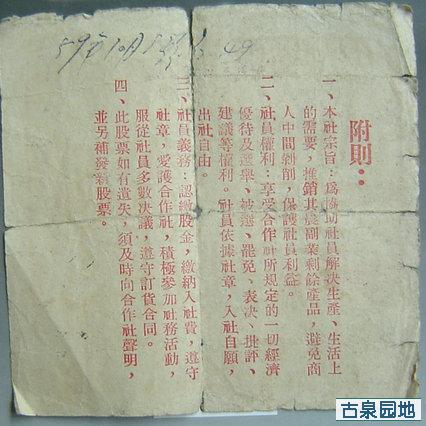 附則：
一、本社宗旨：爲協助社員解決生產、生活上
的需要，推銷其農副業剩餘產品，避免商
人中間剝削，保護社員利益。
二、社員權利：享受合作社所規定的一切經濟
優待及選舉、被選、罷免、表決、批評、
建議等權利。社員依據社章，入社自願，
出社自由。
三、社員義務：認繳股金，繳納入社費，遵守
社章，愛護合作社，積極參加社務活動，
服從社員多數決議，遵守訂貨合同。
四、此股票如有遺失，須及時向合作社聲明，
並另補發新股票。
古泉园地